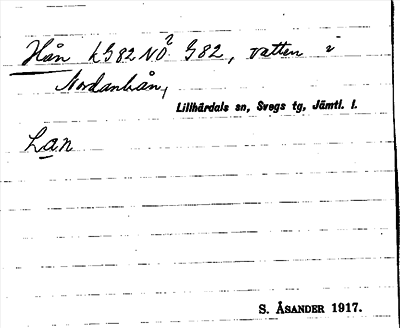 Hån LG82NÖ? G82, vatten i
Nordanhån,
Lillhärdals sn, Svegs tg, Jämtl. l.
S. ÅSANDER 1917.